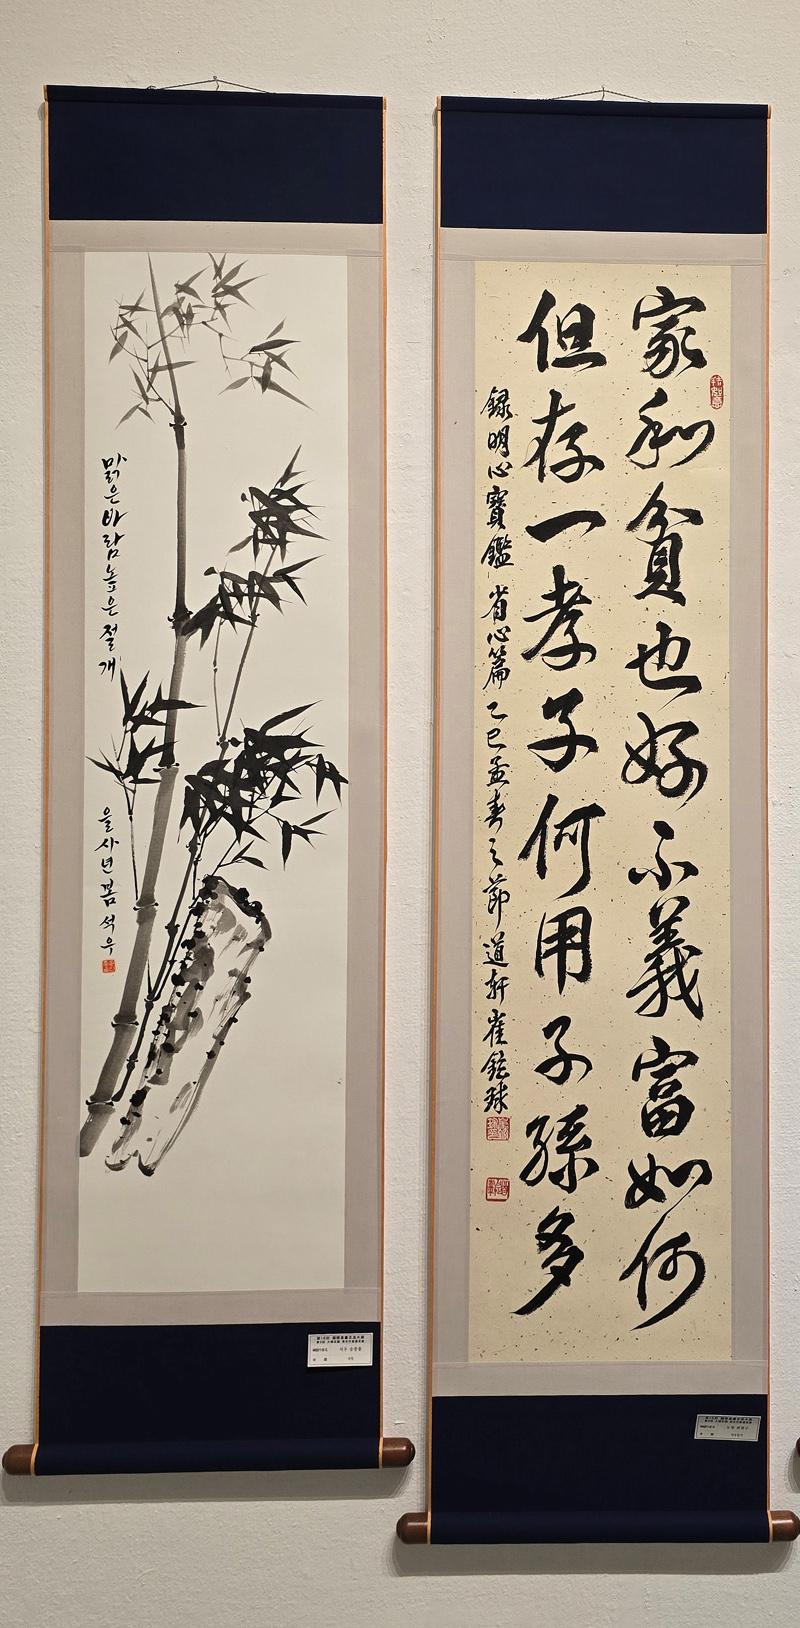 맑은바람높은절개
을사년봄 석우
家和貧也好不義富如何
但存一孝子何用子孫多
録明心寶鑑 省心篇 乙巳孟春之節 道軒 崔